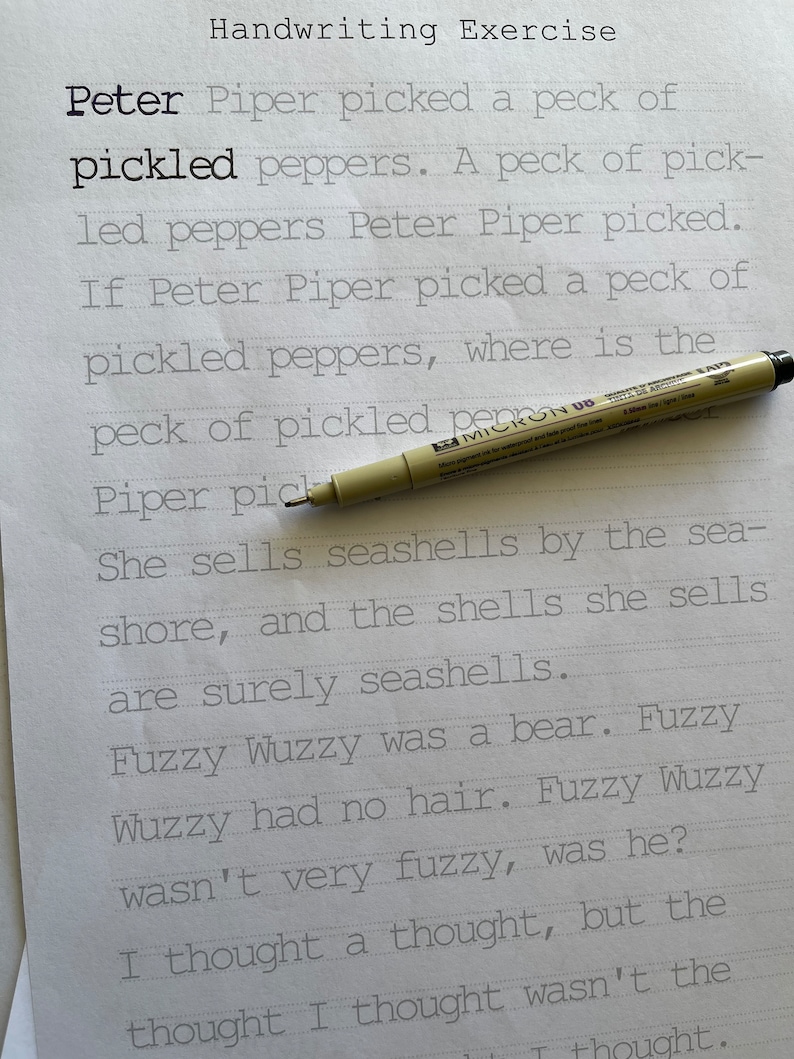 Handwriting Exercise
Peter Piper picked a peck of
pickled peppers. A peck of pick-
led peppers Peter Piper picked.
If Peter Piper picked a peck of
pickled peppers, where is the
peck of pickled
Piper
MICRON 08
QUALITÉ D'ARCHIVAGE
TINTA DE ARCHIVO
0.50mm line / ligne / línea
Micro pigment ink for waterproof and fade proof fine lines
She sells seashells by the sea-
shore, and the shells she sells
are surely seashells.
Fuzzy Wuzzy was a bear. Fuzzy
Wuzzy had no hair. Fuzzy Wuzzy
wasn't very fuzzy, was he?
I thought a thought, but the
thought I thought wasn't the
I thought.